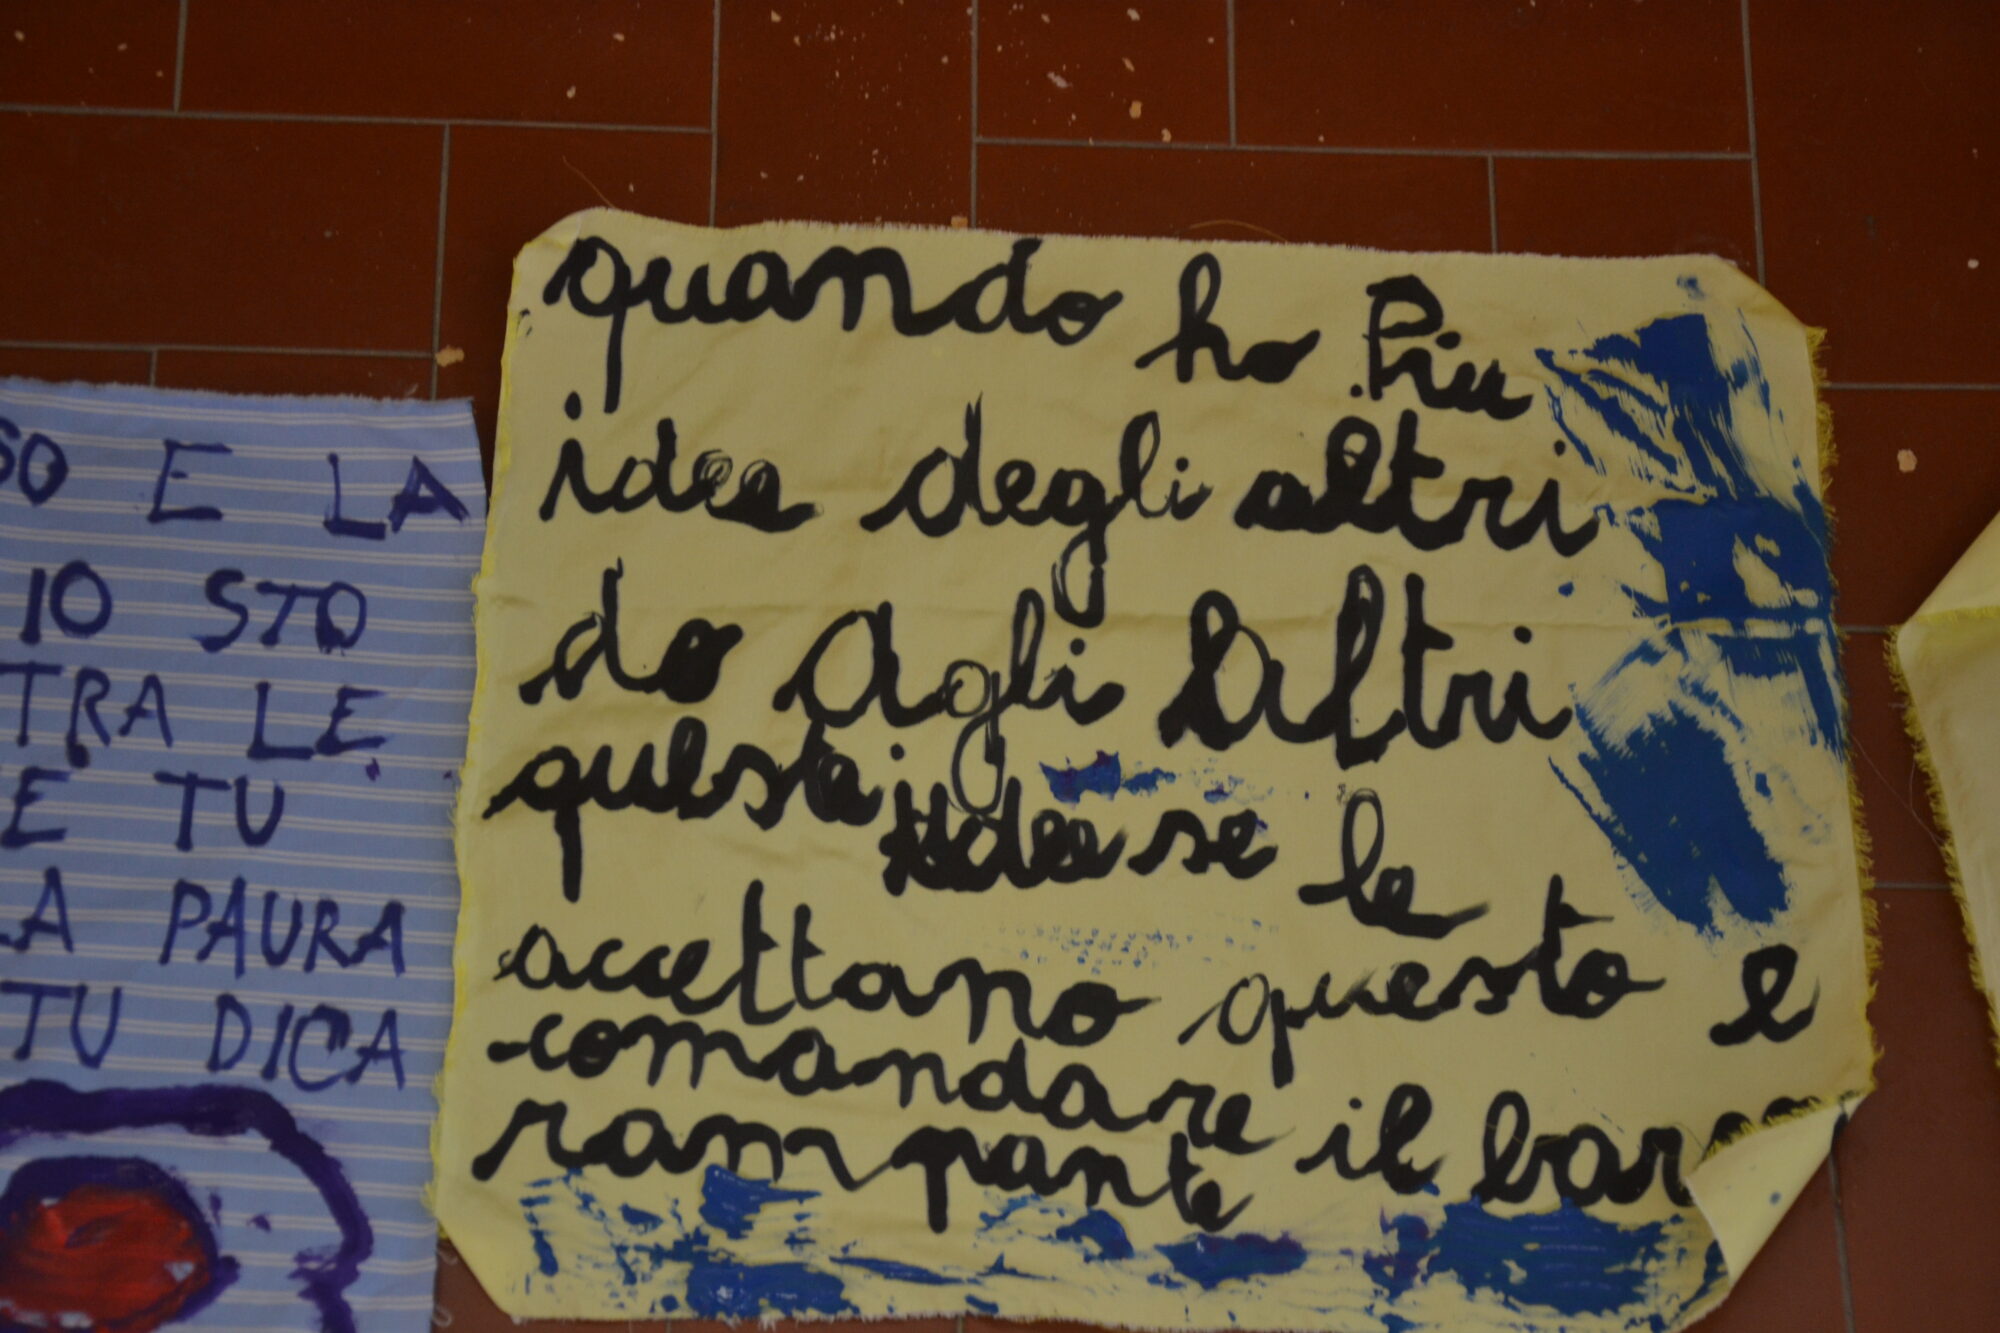 SO E LA
IO STO
TRA LE
E TU
LA PAURA
TU DICA
quando ho Piu
idee degli altri
do Agli Altri
queste idee se le
accettano questo e
comandare il baro
rampante